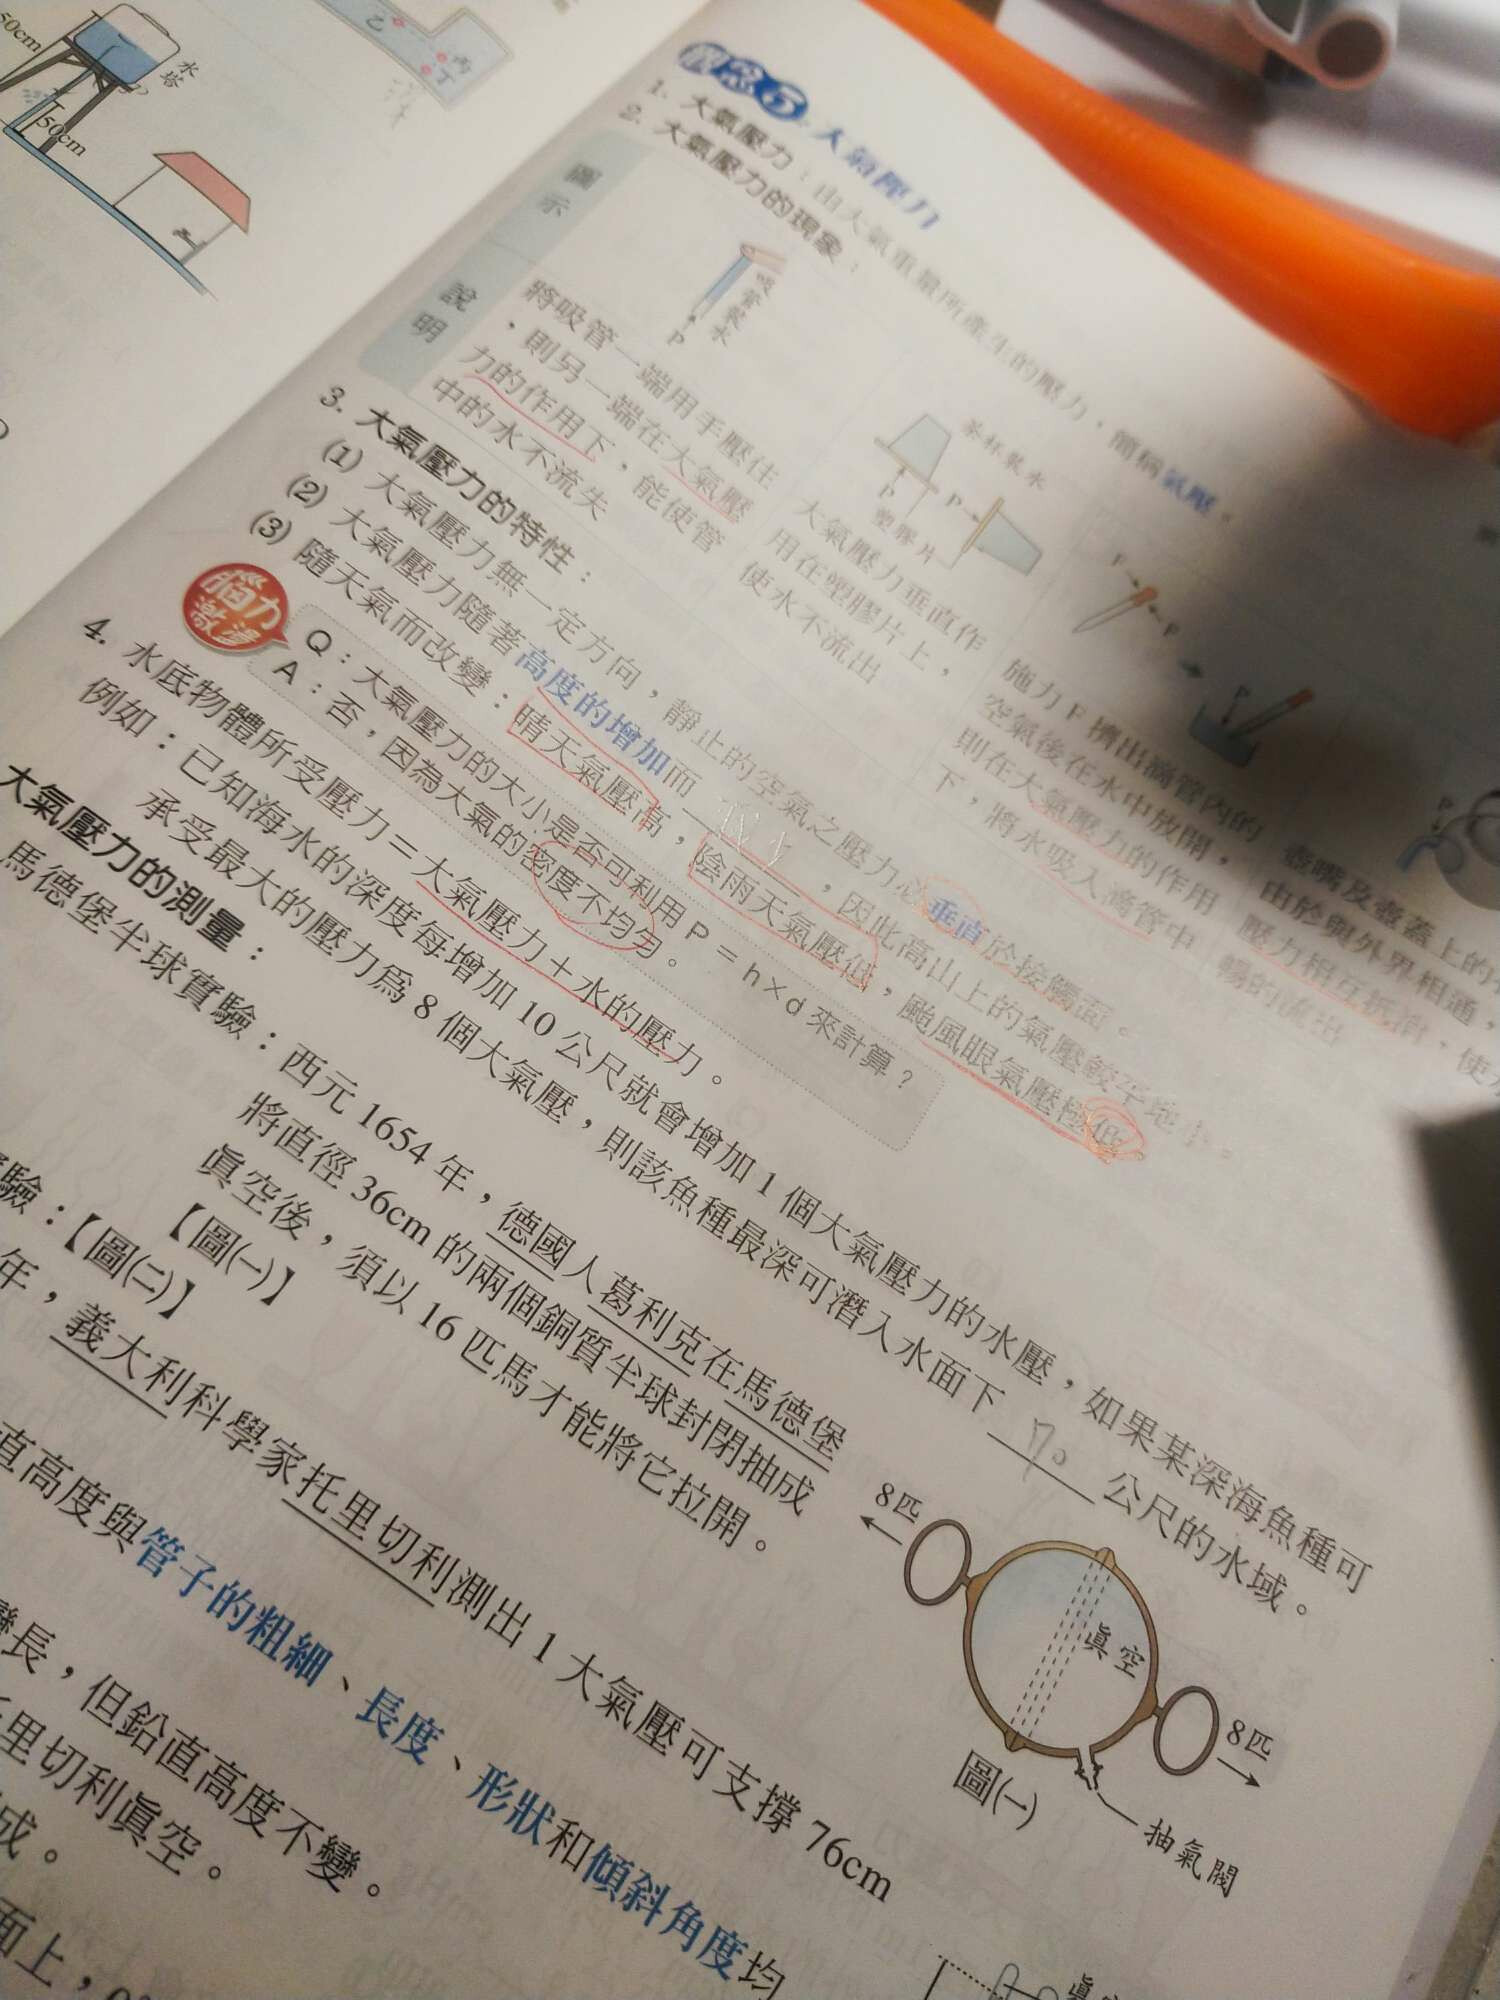 50cm
水塔
50cm
乙
丙
丁
觀念5:大氣壓力
1. 大氣壓力:由大氣重量所產生的壓力,簡稱氣壓。
2. 大氣壓力的現象:
圖示
吸管裝水
P
茶杯裝水
P
P
塑膠片
F
F
P
P
說明
將吸管一端用手壓住
,則另一端在大氣壓
力的作用下,能使管
中的水不流失
大氣壓力垂直作
用在塑膠片上,
使水不流出
施力F擠出滴管內的
空氣後在水中放開,
則在大氣壓力的作用
下,將水吸入滴管中
壺嘴及壺蓋上的
由於與外界相通,
壓力相互抵消,使
暢的流出
3. 大氣壓力的特性:
(1) 大氣壓力無一定方向,靜止的空氣之壓力必垂直於接觸面。
(2) 大氣壓力隨著高度的增加而 減少,因此高山上的氣壓較平地小。
(3) 隨天氣而改變:晴天氣壓高,陰雨天氣壓低,颱風眼氣壓極低。
腦力激盪
Q:大氣壓力的大小是否可利用 P = h×d 來計算?
A:否,因為大氣的密度不均勻。
4. 水底物體所受壓力=大氣壓力+水的壓力。
例如:已知海水的深度每增加 10 公尺就會增加 1 個大氣壓力的水壓,如果某深海魚種可
承受最大的壓力爲 8 個大氣壓,則該魚種最深可潛入水面下 70 公尺的水域。
大氣壓力的測量:
馬德堡半球實驗:西元 1654 年,德國人葛利克在馬德堡
將直徑 36cm 的兩個銅質半球封閉抽成
眞空後,須以 16 匹馬才能將它拉開。
【圖(一)】
驗:【圖(二)】
年,義大利科學家托里切利測出 1 大氣壓可支撐 76cm
直高度與管子的粗細、長度、形狀和傾斜角度均
變長,但鉛直高度不變。
里切利眞空。
成。
面上,
8匹
眞空
8匹
圖(一)
抽氣閥
眞